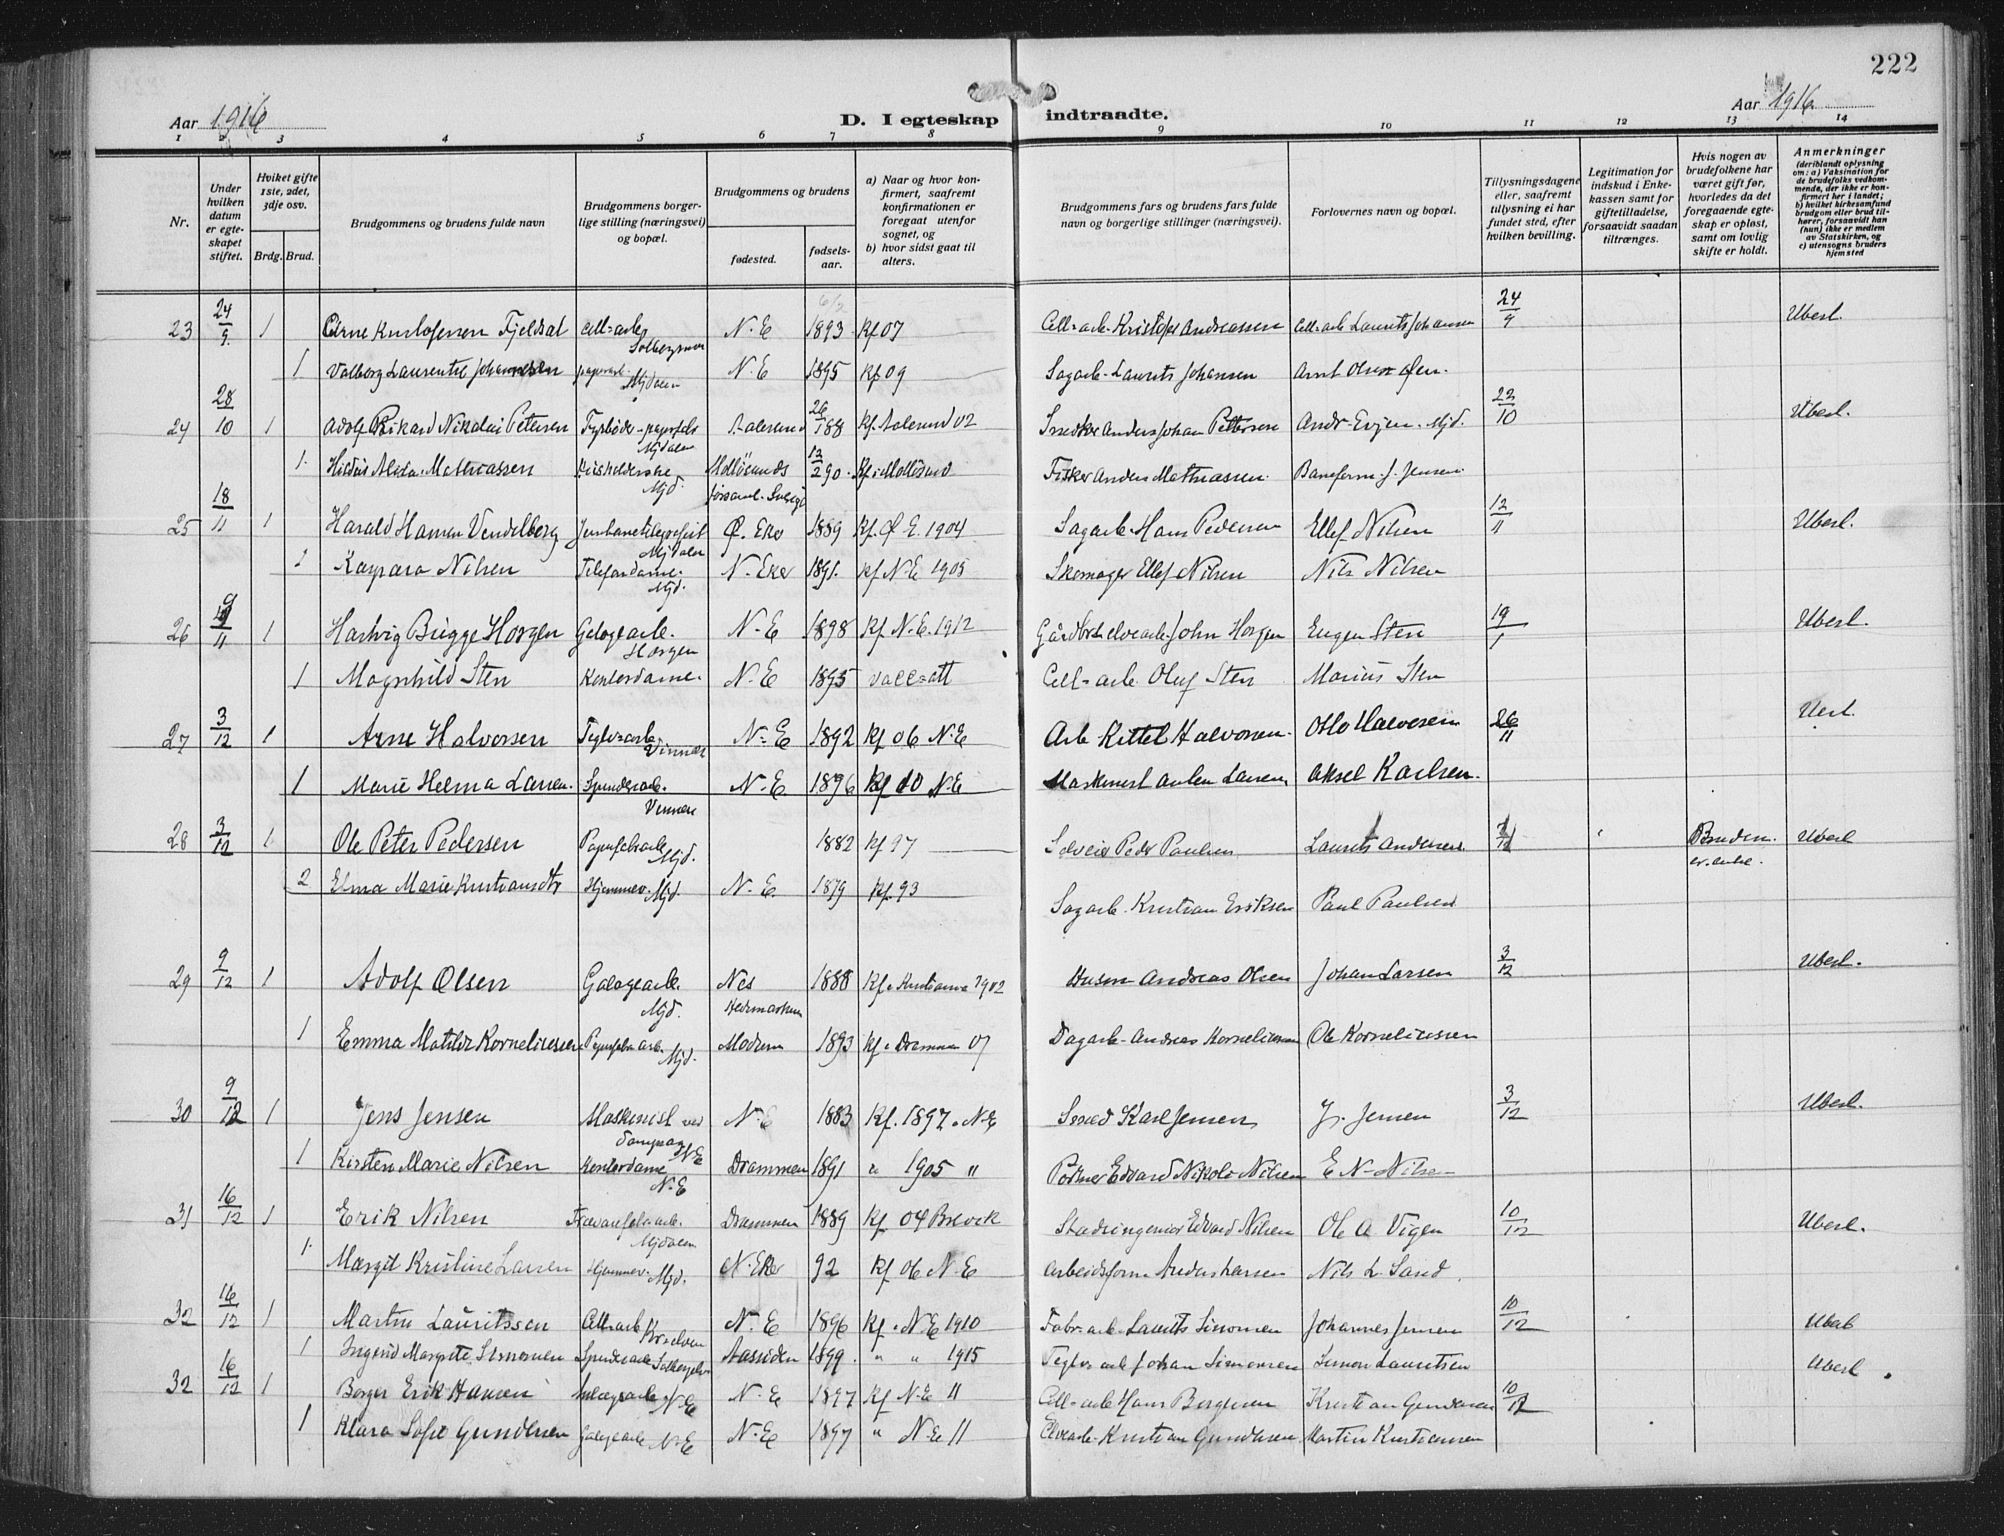 222
Aar 1916
D. I egteskap indtraadte.
Aar 1916
1 2 3 4 5 6 7 8 9 10 11 12 13 14
Nr.
Under hvilken datum er egteskapet stiftet.
Hviket gifte 1ste, 2det, 3dje osv.
Brdg. Brud.
Brudgommens og brudens fulde navn
Brudgommens borgerlige stilling (næringsvei) og bopæl.
Brudgommens og brudens
fødested.
fødselsaar.
a) Naar og hvor konfirmert, saafremt konfirmationen er foregaat utenfor sognet, og
b) hvor sidst gaat til alters.
Brudgommens fars og brudens fars fulde navn og borgerlige stillinger (næringsvei).
Forlovernes navn og bopæl.
Tillysningsdagene eller, saafremt tillysning ei har fundet sted, efter hvilken bevilling.
Legitimation for indskud i Enkekassen samt for giftetilladelse, forsaavidt saadan tiltrænges.
Hvis nogen av brudefolkene har været gift før, hvorledes da det foregaaende egteskap er opløst, samt om lovlig skifte er holdt.
Anmerkninger
(deriblandt oplysning om: a) Vaksination for de brudefolks vedkommende, der ikke er konfirmert her i landet; b) hvilket kirkesamfund brudgom eller brud tilhører, forsaavidt han (hun) ikke er medlem av Statskirken, og c) utensogns bruders hjemsted
23 24/9 1 Arne Kristofersen Fjeldsat Cell-arb. Solbergmoen N. E 1893 Kf 07 Cell-arb. Kristofer Andreassen Cell-arb Laurits Johansen 24/9 Uberl.
1 Valborg Laurentse Johannesen Mjdalen N. E 1895 Kf 09 Sagarb. Laurits Johansen Arnt Olsen
24 28/10 1 Adolf Rikard Nikolai Petersen Fyrbøder - papirfabr Mjdalen Aalesund 26/1 88 Kf. Aalesund 02 Anders Johan Pettersen Andr. Evjen. Mjd. 22/10 Uberl.
1 Alida Mathiassen Husholderske Mjd. Mollösunds 12/2 90 Kf. i Mollösund Fisker Anders Mathiassen Baneform. J. Jensen
25 18/11 1 Harald Hansen Vendelborg Jernbanetelegrafist Mjdalen Ø. Eker 1889 Kf. Ø E. 1904 Sagarb. Hans Pedersen Ellef Nilsen 12/11 Uberl.
1 Kaspara Nilsen Telefondame. Mjd. N. Eker 1891. Kf N. E 1905 Skomager Ellef Nilsen Nils Nilsen
26 9/11 1 Hartvig Brügge Horgen Galogearb. Horgen N. E 1898 Kf N. E. 1912 John Horgen Eugen Sten 19/1 Uberl.
1 Magnhild Sten Kontordame. N. E 1895 Cell-arb. Oluf Sten Marius Sten
27 3/12 1 Arne Halvorsen Teglv=arb. Vinnæs N. E 1892 Kf 06 N. E Arb Kittel Halvorsen. Otto Halvorsen 26/11 Uberl.
1 Marie Helma Larsen. Spinderarb. Vinnæs N. E 1896 Kf 10 N. E Maskinist Anton Larsen Aksel Karlsen.
28 3/12 1 Ole Peter Pedersen Papirfabrarb. Mjd. 1882 Kf 97 Selveier Peder Paulsen Laurits Andersen Bruden er enke. Uberl
2 Elma Marie Kristiansdtr Hjemmev. Mjd N. E. 1879 Kf. 93
Sagarb. Kristian Eriksen Paul Paulsen
29 9/12 1 Adolf Olsen Galogearb. Mjd. Nes Hedemarken 1888 Kf. Kristiania 1902 Husm Andreas Olsen Johan Larsen 3/12 Uberl.
1 Emma Matilde Korneliussen Papirfabr arb. Mjd. Modum 1893 Kf. Drammen 07 Dagarb. Andreas Korneliussen Ole Korneliussen
30 9/12 1 Jens Jensen Maskinist ved dampsag N. E N. E 1883 Kf. 1897. N. E Karl Jensen J. Jensen 3/12 Uberl.
1 Kirsten Marie Nilsen Kontordame N. E Drammen 1891 " 1905 " Edvard Nikolai Nilsen E. N. Nilsen
31 16/12 1 Erik Nilsen Trævarefabrarb. Mjdalen Drammen 1889 Kf. 04 Brevik Stadsingeniør Edvard Nilsen Ole A. Vigen 10/12 Uberl.
1 Margit Kristine Larsen Hjemmev. Mjd. N. Eker 92 Kf 06 N. E Arbeidsform Anders Larsen Nils L. Sand
32 16/12 1 Martin Lauritssen Cellarb N. E 1896 Kf. N. E 1910 Fabr-arb Laurits Simonsen Johannes Jensen 10/12 Uberl
1 Ingerid Margrete Simonsen Spinderarb Solbergelven Aassiden 1899 " " 1915 Teglv arb Johan Simonsen Simon Lauritsen Uberl
32 16/12 1 Borger Erik Hansen N. E N. E 1897 Kf N. E 11 Cell-arb Hans Borgersen Kristian Gundersen 10/12
1 Klara Sofie Gundersen Galogearb N. E N. E 1897 " N. E 11 Elvearb. Kristian Gundersen. Martin Kristiansen